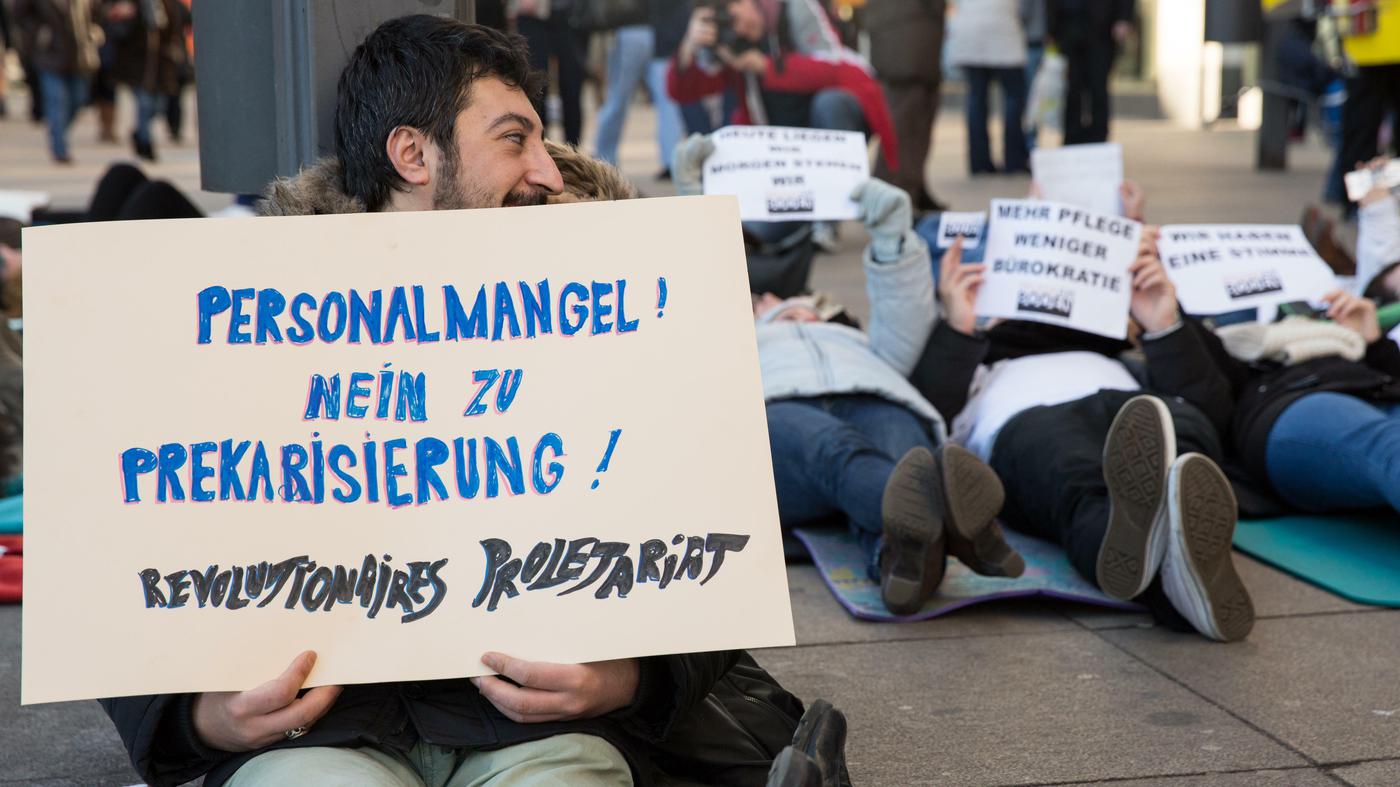 PERSONALMANGEL!
NEIN ZU
PREKARISIERUNG!
REVOLUTIONAIRES PROLETARIAT
HEUTE LIEGEN
WIR
MORGEN STEHEN
WIR
MEHR PFLEGE
WENIGER
BÜROKRATIE
BODEN
WIR HABEN
EINE STIMME